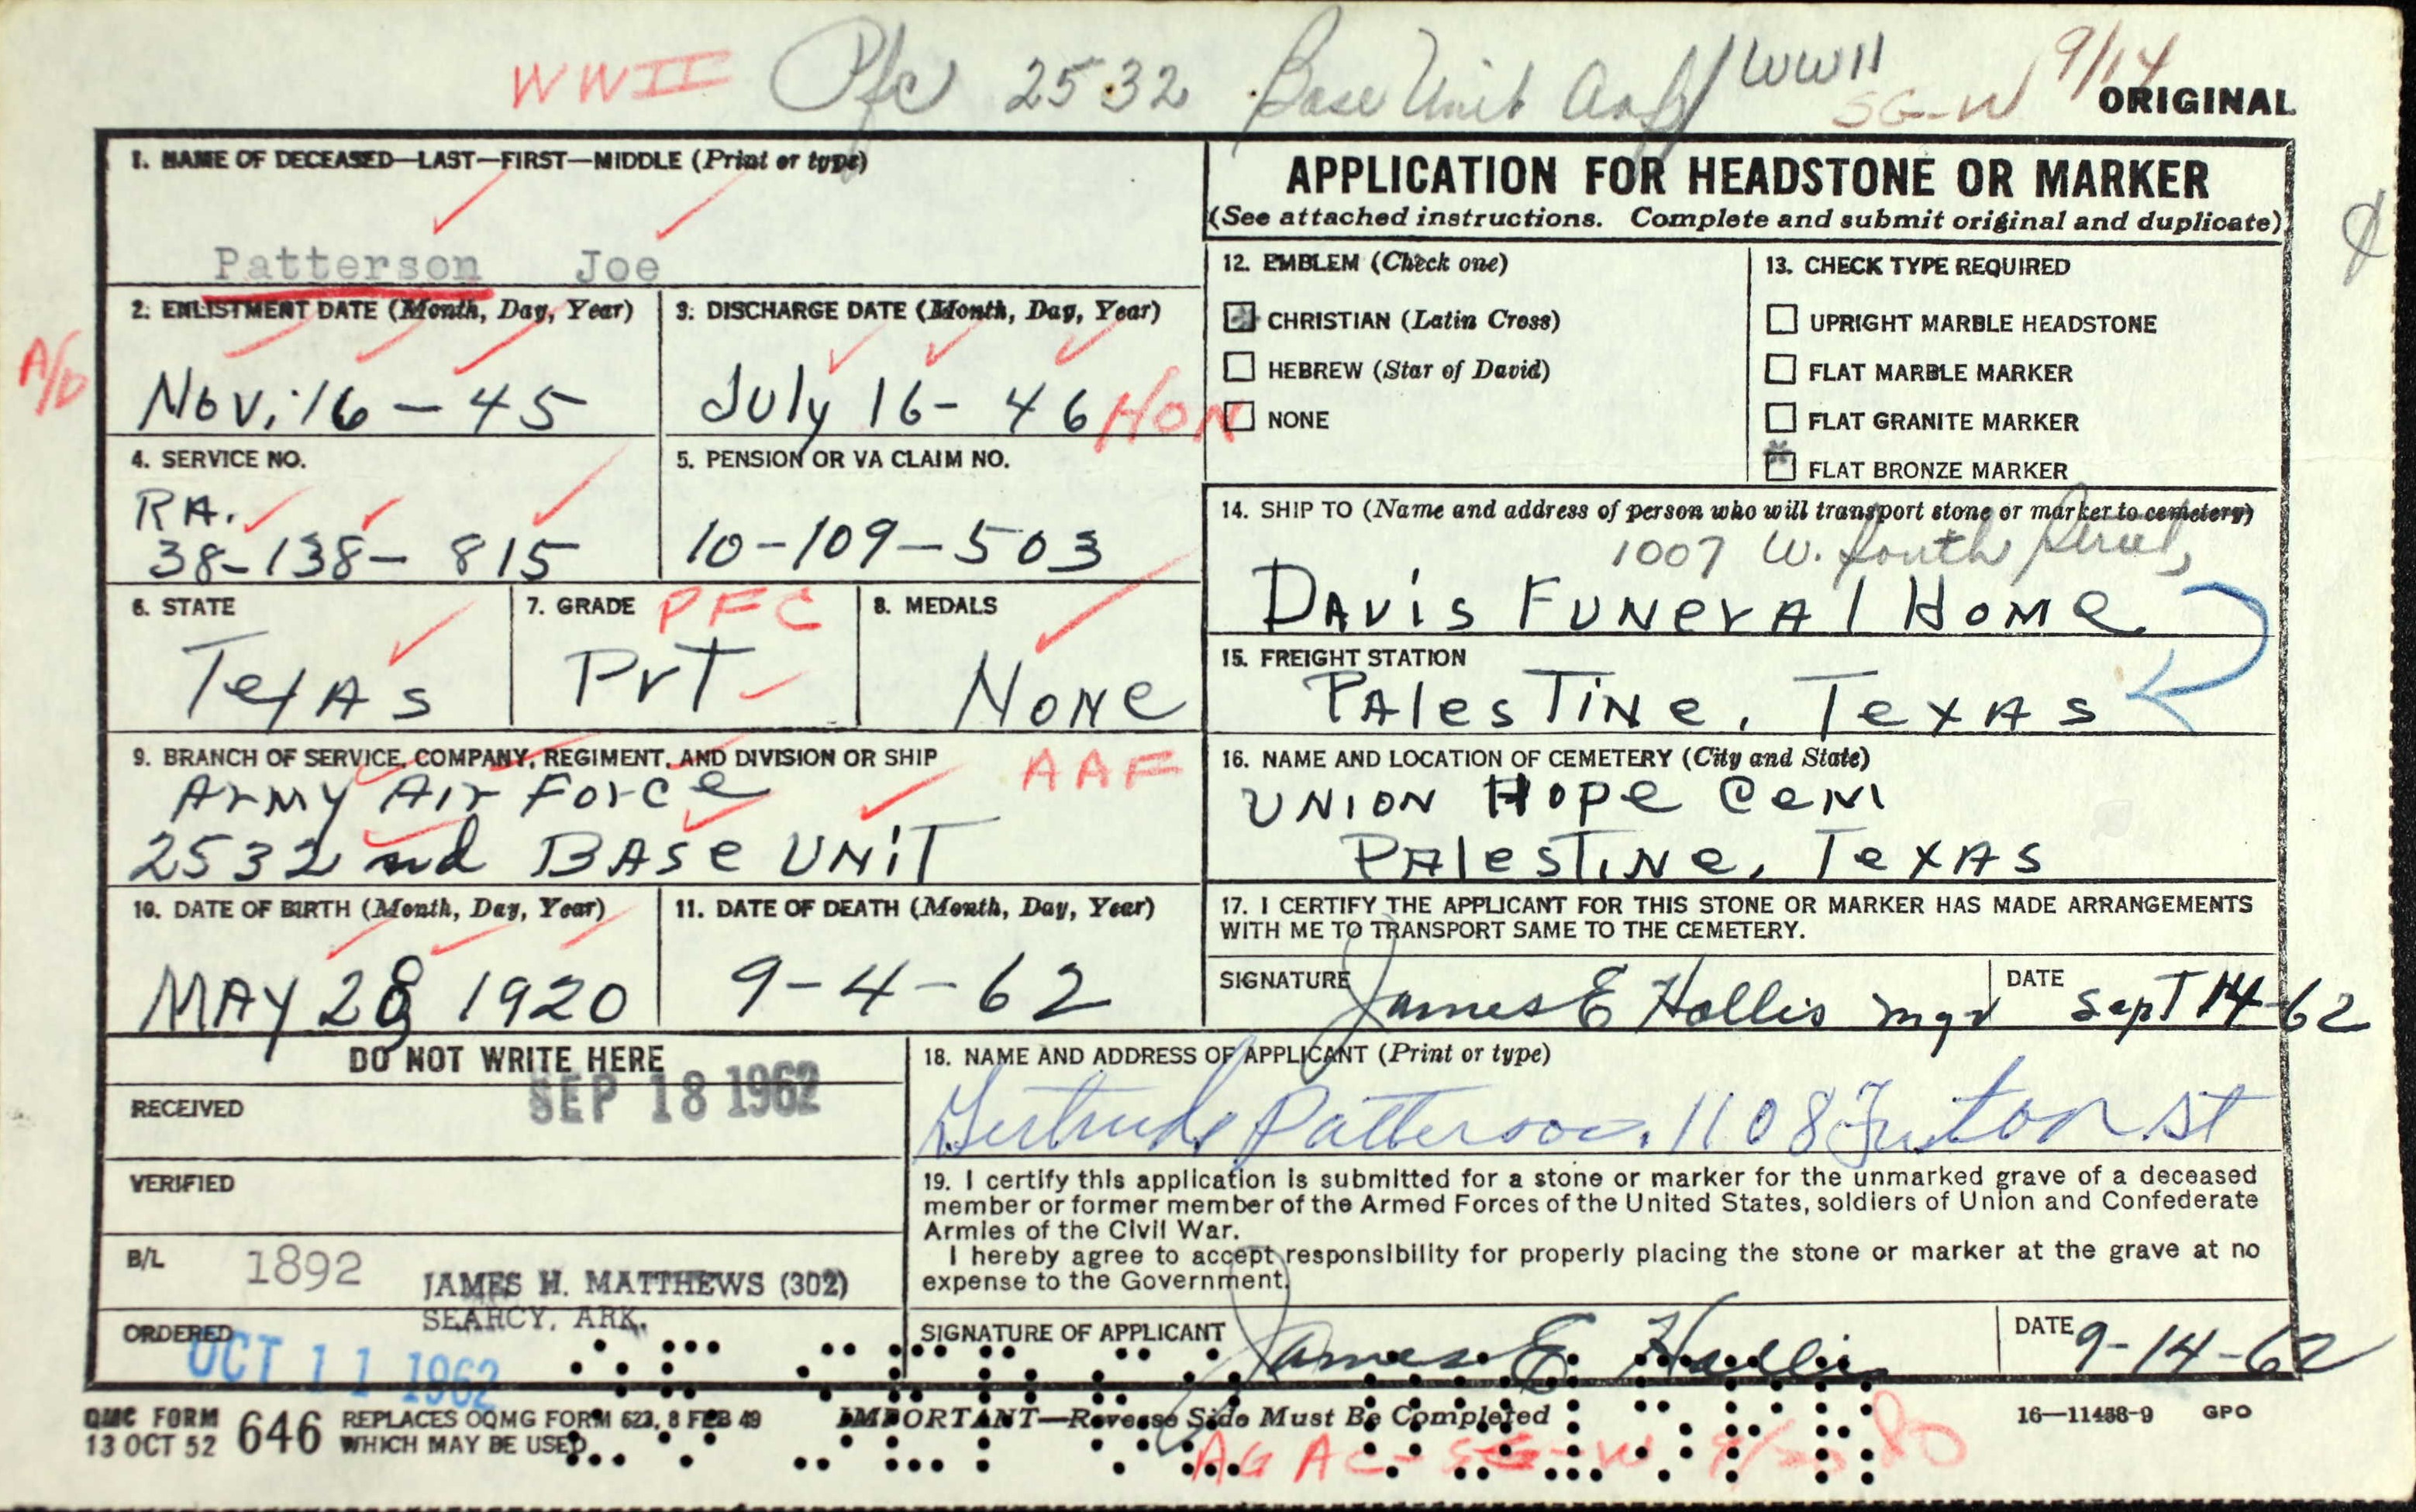 WWII Pfc 2532 Base Unit AAF WWII SG-W 9/14
ORIGINAL
1. NAME OF DECEASED—LAST—FIRST—MIDDLE (Print or type)
Patterson Joe
2. ENLISTMENT DATE (Month, Day, Year)
A/D
Nov. 16 - 45
3. DISCHARGE DATE (Month, Day, Year)
July 16 - 46 HON
4. SERVICE NO.
RA.
38-138-815
5. PENSION OR VA CLAIM NO.
10-109-503
6. STATE
Texas
7. GRADE PFC
Pvt
8. MEDALS
None
9. BRANCH OF SERVICE, COMPANY, REGIMENT, AND DIVISION OR SHIP
AAF
Army Air Force
2532 nd Base Unit
10. DATE OF BIRTH (Month, Day, Year)
MAY 28 1920
11. DATE OF DEATH (Month, Day, Year)
9-4-62
APPLICATION FOR HEADSTONE OR MARKER
(See attached instructions. Complete and submit original and duplicate)
12. EMBLEM (Check one)
CHRISTIAN (Latin Cross)
HEBREW (Star of David)
NONE
13. CHECK TYPE REQUIRED
UPRIGHT MARBLE HEADSTONE
FLAT MARBLE MARKER
FLAT GRANITE MARKER
FLAT BRONZE MARKER
14. SHIP TO (Name and address of person who will transport stone or marker to cemetery)
1007 W. South Street,
Davis Funeral Home
15. FREIGHT STATION
Palestine, Texas
16. NAME AND LOCATION OF CEMETERY (City and State)
Union Hope Cem
Palestine, Texas
17. I CERTIFY THE APPLICANT FOR THIS STONE OR MARKER HAS MADE ARRANGEMENTS
WITH ME TO TRANSPORT SAME TO THE CEMETERY.
SIGNATURE James E Hollis mgr
DATE Sept 14-62
DO NOT WRITE HERE
RECEIVED SEP 18 1962
VERIFIED
B/L 1892
JAMES H. MATTHEWS (302)
SEARCY, ARK.
ORDERED OCT 11 1962
18. NAME AND ADDRESS OF APPLICANT (Print or type)
Gertrude Patterson. 1108 St
19. I certify this application is submitted for a stone or marker for the unmarked grave of a deceased
member or former member of the Armed Forces of the United States, soldiers of Union and Confederate
Armies of the Civil War.
I hereby agree to accept responsibility for properly placing the stone or marker at the grave at no
expense to the Government.
SIGNATURE OF APPLICANT James E Hollis
DATE 9-14-62
QMC FORM
13 OCT 52 646 REPLACES OQMG FORM 623, 8 FEB 49
WHICH MAY BE USED
IMPORTANT—Reverse Side Must Be Completed
16—11458-9 GPO
AG AC - SG-W